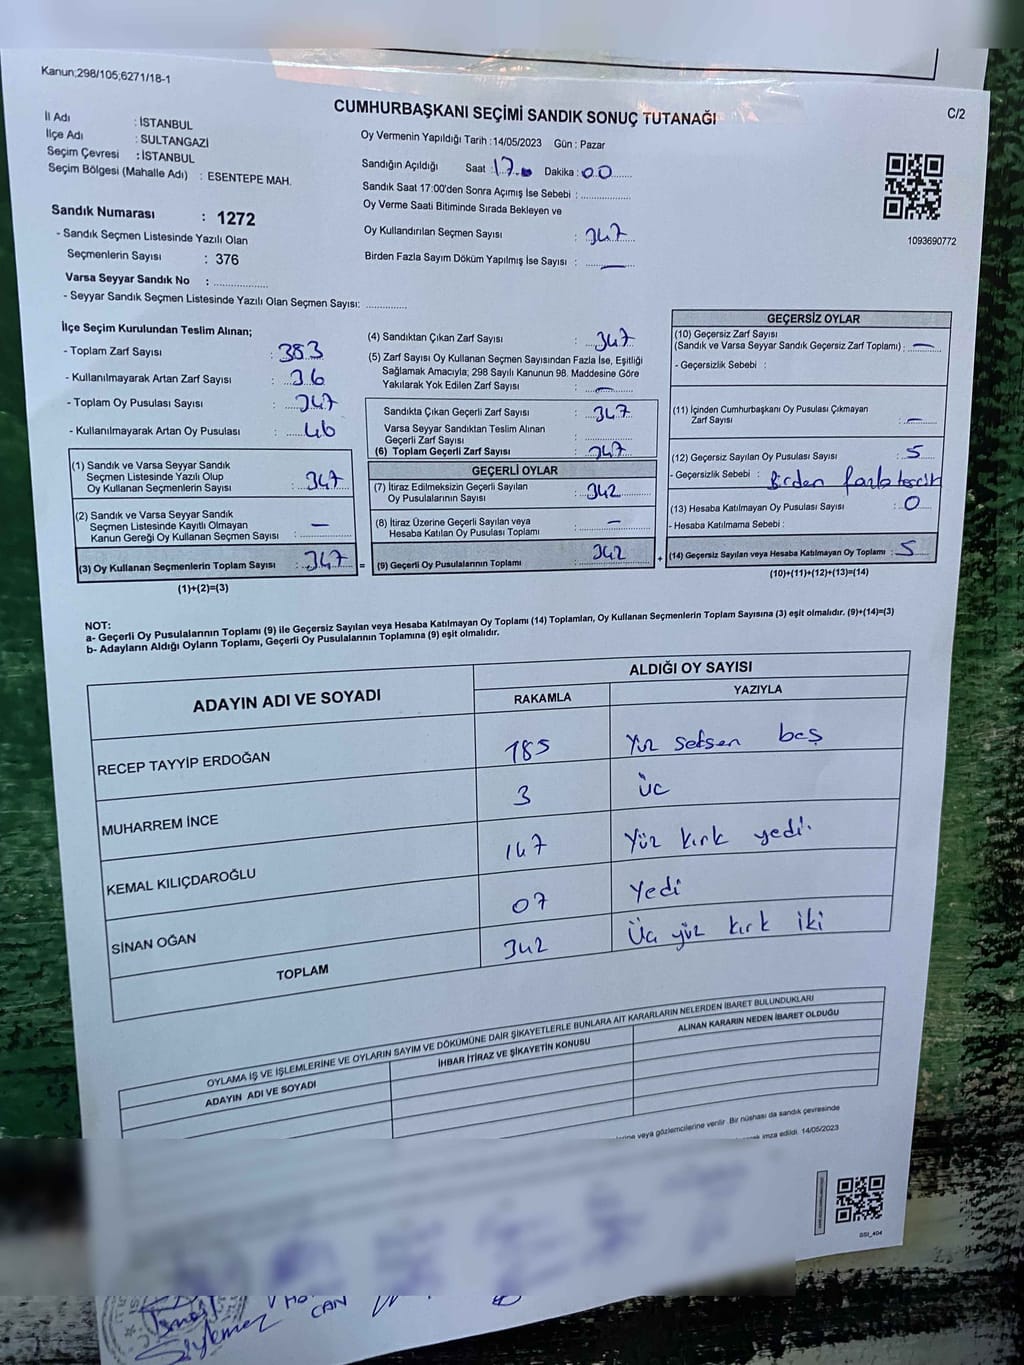 Kanun;298/105,6271/18-1
CUMHURBAŞKANI SEÇİMİ SANDIK SONUÇ TUTANAĞI
C/2
İl Adı : İSTANBUL
İlçe Adı : SULTANGAZİ
Seçim Çevresi : İSTANBUL
Seçim Bölgesi (Mahalle Adı) : ESENTEPE MAH.
Sandık Numarası : 1272
- Sandık Seçmen Listesinde Yazılı Olan
Seçmenlerin Sayısı : 376
Varsa Seyyar Sandık No : ................
- Seyyar Sandık Seçmen Listesinde Yazılı Olan Seçmen Sayısı: ............
Oy Vermenin Yapıldığı Tarih :14/05/2023 Gün : Pazar
Sandığın Açıldığı Saat : 17.0 Dakika : 00
Sandık Saat 17:00'den Sonra Açımış İse Sebebi : ...............
Oy Verme Saati Bitiminde Sırada Bekleyen ve
Oy Kullandırılan Seçmen Sayısı : 347
Birden Fazla Sayım Döküm Yapılmış İse Sayısı : —
1093690772
İlçe Seçim Kurulundan Teslim Alınan;
- Toplam Zarf Sayısı : 383
- Kullanılmayarak Artan Zarf Sayısı : 36
- Toplam Oy Pusulası Sayısı : 347
- Kullanılmayarak Artan Oy Pusulası : 46
(1) Sandık ve Varsa Seyyar Sandık
Seçmen Listesinde Yazılı Olup
Oy Kullanan Seçmenlerin Sayısı : 347
(2) Sandık ve Varsa Seyyar Sandık
Seçmen Listesinde Kayıtlı Olmayan
Kanun Gereği Oy Kullanan Seçmen Sayısı : —
(3) Oy Kullanan Seçmenlerin Toplam Sayısı : 347 =
(1)+(2)=(3)
(4) Sandıktan Çıkan Zarf Sayısı : 347
(5) Zarf Sayısı Oy Kullanan Seçmen Sayısından Fazla İse, Eşitliği
Sağlamak Amacıyla; 298 Sayılı Kanunun 98. Maddesine Göre
Yakılarak Yok Edilen Zarf Sayısı : —
Sandıkta Çıkan Geçerli Zarf Sayısı : 347
Varsa Seyyar Sandıktan Teslim Alınan
Geçerli Zarf Sayısı :
(6) Toplam Geçerli Zarf Sayısı : 347
GEÇERLİ OYLAR
(7) İtiraz Edilmeksizin Geçerli Sayılan
Oy Pusulalarının Sayısı : 342
(8) İtiraz Üzerine Geçerli Sayılan veya
Hesaba Katılan Oy Pusulası Toplamı : —
(9) Geçerli Oy Pusulalarının Toplamı : 342 +
GEÇERSİZ OYLAR
(10) Geçersiz Zarf Sayısı
(Sandık ve Varsa Seyyar Sandık Geçersiz Zarf Toplamı) : —
- Geçersizlik Sebebi :
(11) İçinden Cumhurbaşkanı Oy Pusulası Çıkmayan
Zarf Sayısı : —
(12) Geçersiz Sayılan Oy Pusulası Sayısı : 5
- Geçersizlik Sebebi : Birden fazla tercih
(13) Hesaba Katılmayan Oy Pusulası Sayısı : 0
- Hesaba Katılmama Sebebi :
(14) Geçersiz Sayılan veya Hesaba Katılmayan Oy Toplamı : 5
(10)+(11)+(12)+(13)=(14)
NOT:
a- Geçerli Oy Pusulalarının Toplamı (9) ile Geçersiz Sayılan veya Hesaba Katılmayan Oy Toplamı (14) Toplamları, Oy Kullanan Seçmenlerin Toplam Sayısına (3) eşit olmalıdır. (9)+(14)=(3)
b- Adayların Aldığı Oyların Toplamı, Geçerli Oy Pusulalarının Toplamına (9) eşit olmalıdır.
ADAYIN ADI VE SOYADI
ALDIĞI OY SAYISI
RAKAMLA YAZIYLA
RECEP TAYYİP ERDOĞAN 185 Yüz seksen beş
MUHARREM İNCE 3 Üc
KEMAL KILIÇDAROĞLU 147 Yüz kırk yedi.
SİNAN OĞAN 07 Yedi
TOPLAM 342 Üç yüz kırk iki
OYLAMA İŞ VE İŞLEMLERİNE VE OYLARIN SAYIM VE DÖKÜMÜNE DAİR ŞİKAYETLERLE BUNLARA AİT KARARLARIN NELERDEN İBARET BULUNDUKLARI
ADAYIN ADI VE SOYADI İHBAR İTİRAZ VE ŞİKAYETİN KONUSU ALINAN KARARIN NEDEN İBARET OLDUĞU
veya gözlemcilerine verilir. Bir nüshası da sandık çevresinde
imza edildi. 14/05/2023
CAN